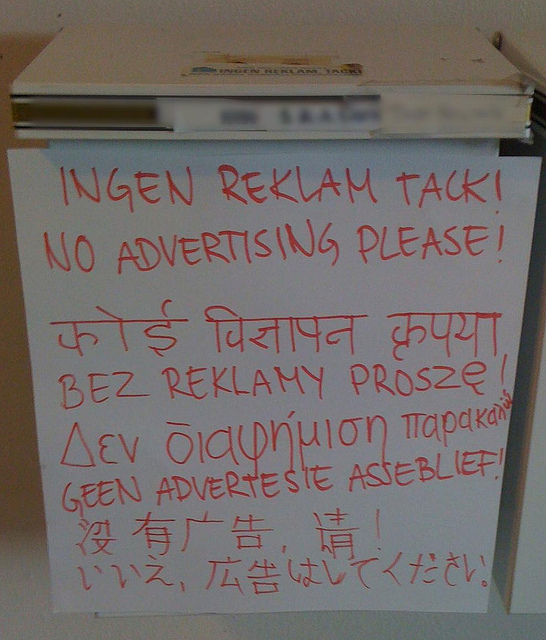 INGEN REKLAM, TACK!
INGEN REKLAM TACK!
NO ADVERTISING PLEASE!
कोई विज्ञापन कृपया
BEZ REKLAMY PROSZĘ!
Δεν διαφήμιση παρακαλώ
GEEN ADVERTESIE ASSEBLIEF!
没有广告, 请!
いいえ, 広告はしてください。